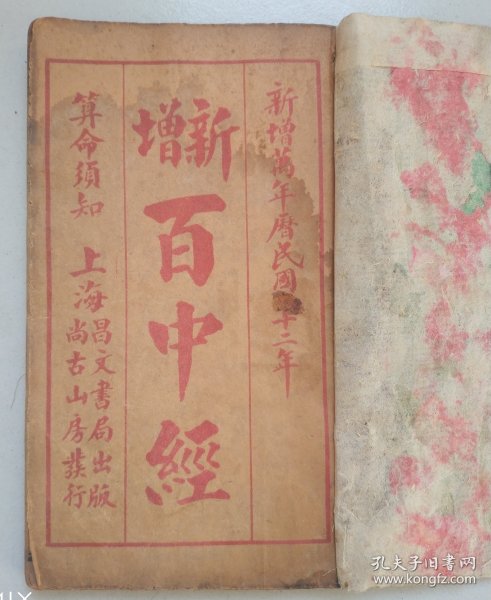 新增萬年曆民國十二年
新增
百中經
算命須知
上海
昌文書局出版
尚古山房發行
孔夫子旧书网